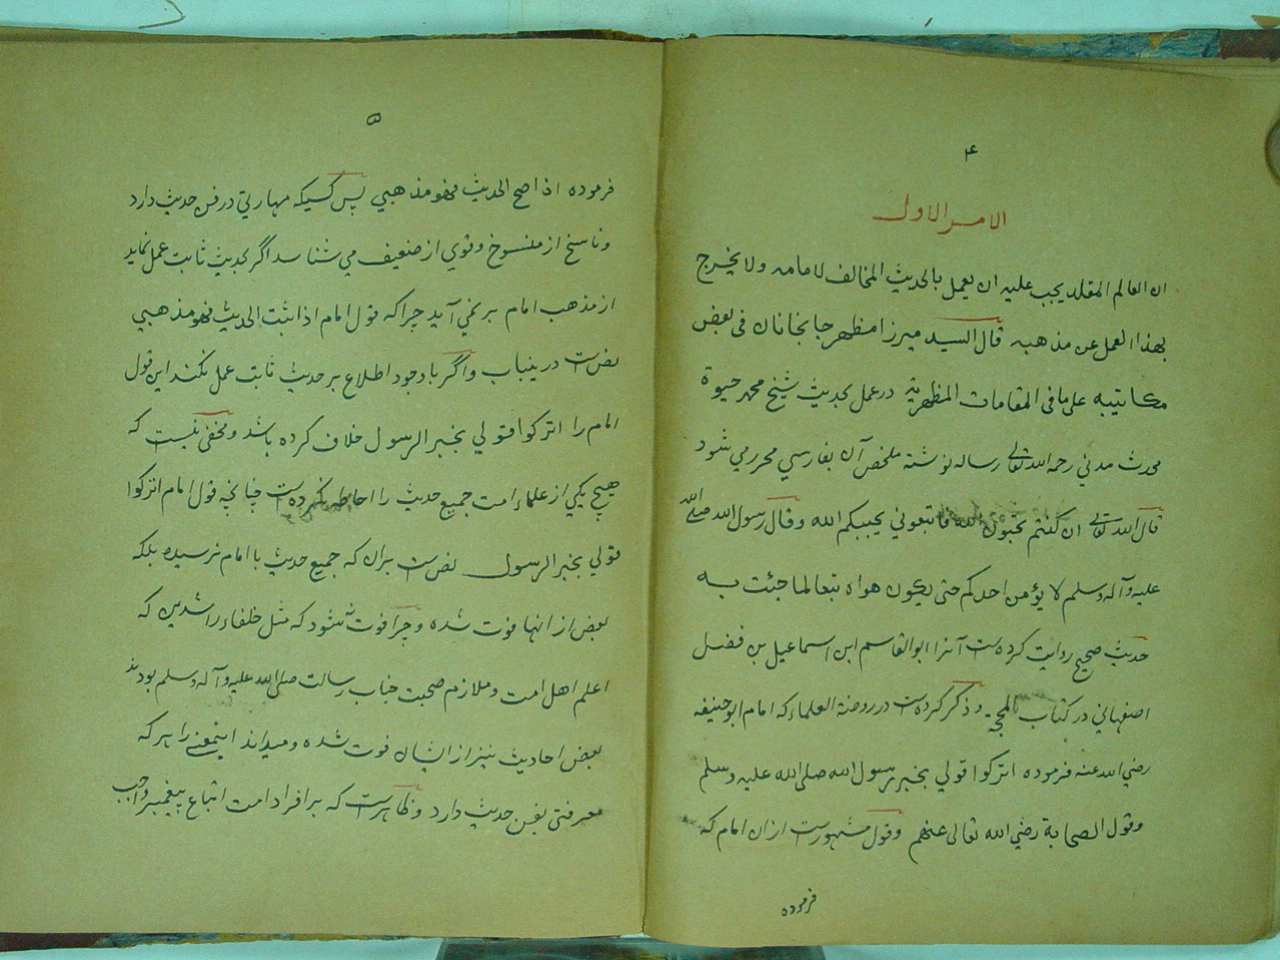 ۴
الامر الاول
ان العالم المقلد يجب عليه ان يعمل بالحديث المخالف لامامه ولا يخرج
بهذا العمل عن مذهبه قال السيد ميرزا مظهر جانجانان فى بعض
مكاتيبه على ما فى المقامات المظهرية در عمل بحديث شيخ محمد حيوة
محدث مدني رحمه الله تعالى رساله نوشته ملخص آن بفارسي محرر مي شود
قال الله تعالى ان كنتم تحبون الله فاتبعوني يحببكم الله وقال رسول الله صلى الله
عليه وآله وسلم لا يؤمن احدكم حتى يكون هواه تبعا لما جئت به
حديث صحيح روايت كرده ست آنرا ابو القاسم ابن اسماعيل بن فضل
اصفهاني در كتاب الحجة و ذكر كرده ست در روضة العلماء كه امام ابو حنيفه
رضي الله عنه فرموده اتركوا قولي بخبر رسول الله صلى الله عليه وسلم
وقول الصحابة رضي الله تعالى عنهم وقول مشهورست ازان امام كه
فرموده
۵
فرموده اذا صح الحديث فهو مذهبي پس كسيكه مهارتي در فن حديث دارد
وناسخ از منسوخ وقوي از ضعيف مي شناسد اگر بحديث ثابت عمل نمايد
از مذهب امام بر نمي آيد چراكه قول امام اذا ثبت الحديث فهو مذهبي
نص ست درينباب واگر باوجود اطلاع بر حديث ثابت عمل نكند اين قول
امام را اتركوا قولي بخبر الرسول خلاف كرده باشد ومخفى نيست كه
هيچ يكي از علماء امت جميع حديث را احاطه نكرده ست چنانچه قول امام اتركوا
قولي بخبر الرسول نص ست بران كه جميع حديث با امام نرسيده بلكه
بعض از انها فوت شده وچرا فوت نشود كه مثل خلفاء راشدين كه
اعلم اهل امت وملازم صحبت جناب رسالت صلى الله عليه وآله وسلم بودند
بعض احاديث نيز از ايشان فوت شده وميداند اينمعنے را هر كه
معرفتى بفن حديث دارد وظاهرست كه بر افراد امت اتباع پيغمبر واجب